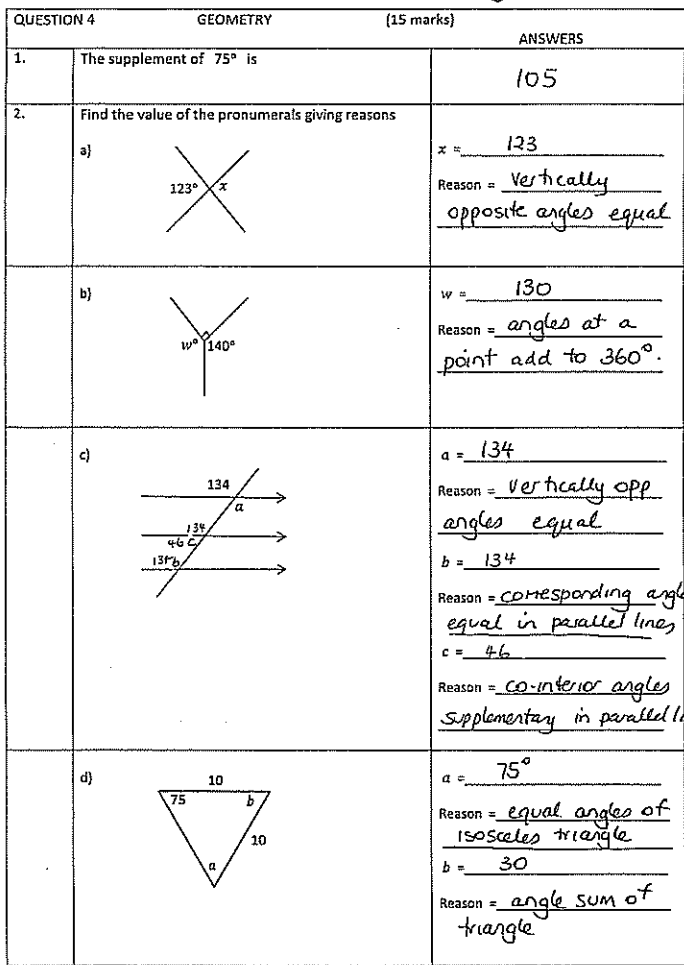 QUESTION 4 GEOMETRY (15 marks)
ANSWERS
1. The supplement of 75° is
105
2. Find the value of the pronumerals giving reasons
a)
123° x
x = 123
Reason = vertically
opposite angles equal
b)
w° 140°
w = 130
Reason = angles at a
point add to 360°.
c)
134
a
134
46 c
b
a = 134
Reason = vertically opp
angles equal
b = 134
Reason = corresponding angle
equal in parallel lines
c = 46
Reason = co-interior angles
supplementary in parallel
d)
10
75 b
10
a
a = 75°
Reason = equal angles of
isosceles triangle
b = 30
Reason = angle sum of
triangle